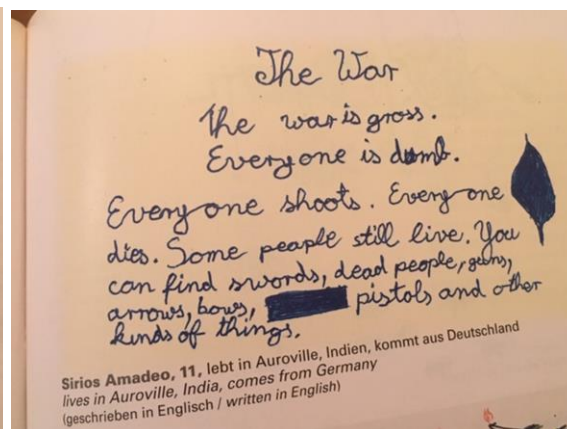 The War
The war is gross.
Everyone is dumb.
Everyone shoots. Everyone
dies. Some peaple still live. You
can find swords, dead people, guns,
arrows, bows, pistols and other
kinds of things.
Sirios Amadeo, 11, lebt in Auroville, Indien, kommt aus Deutschland
lives in Auroville, India, comes from Germany
(geschrieben in Englisch / written in English)